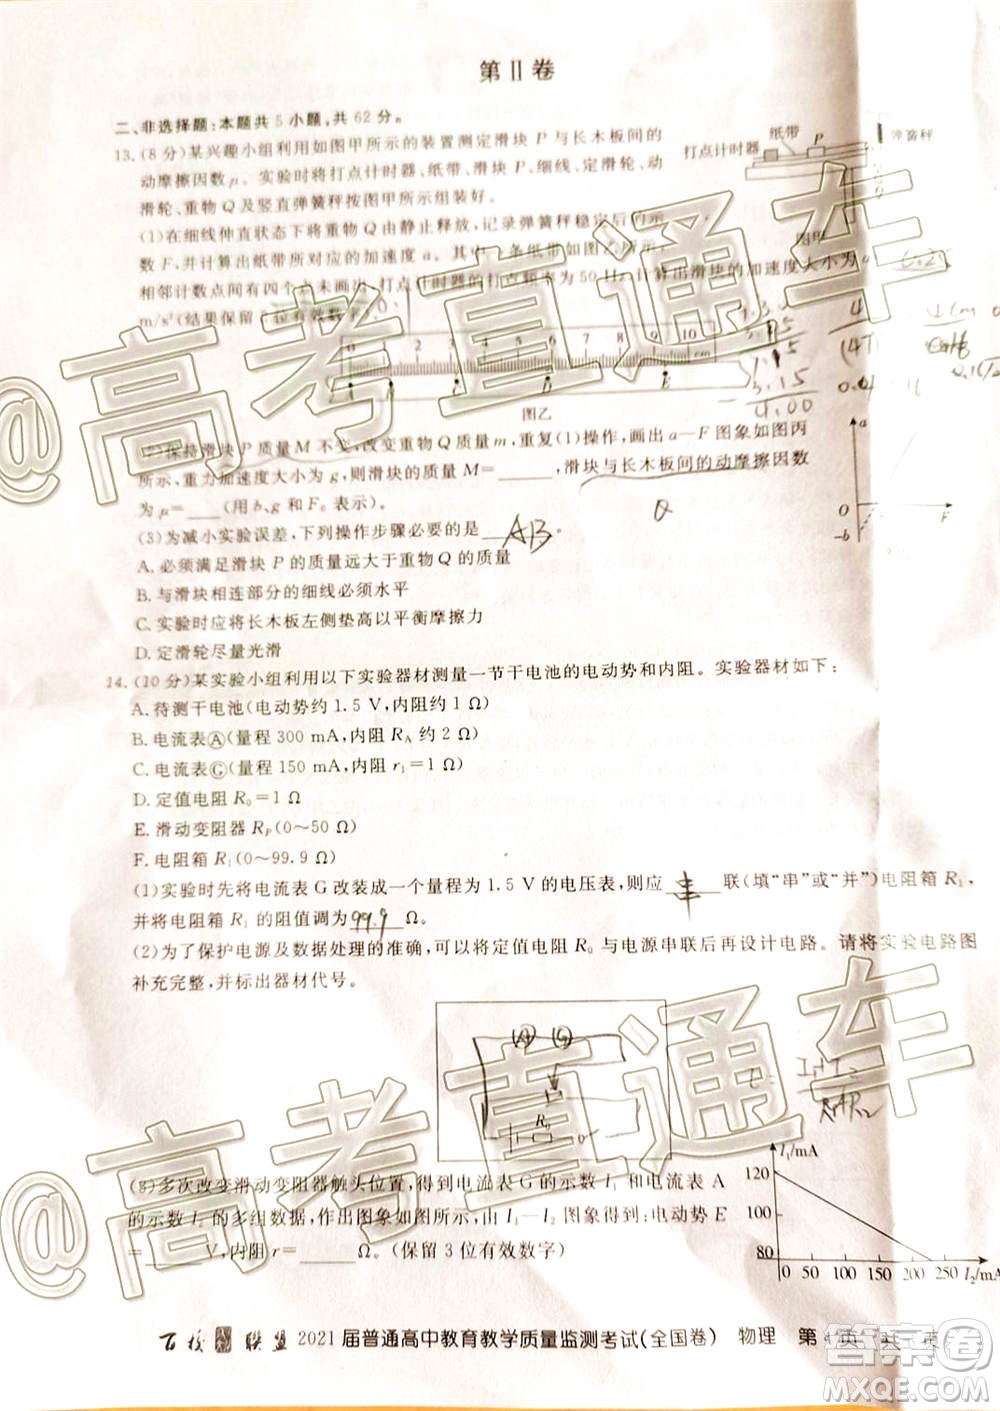 第Ⅱ卷
二、非选择题:本题共5小题,共62分。
13.(8分)某兴趣小组利用如图甲所示的装置测定滑块P与长木板间的
动摩擦因数μ。实验时将打点计时器、纸带、滑块P、细线、定滑轮、动
滑轮、重物Q及竖直弹簧秤按图甲所示组装好。
打点计时器 纸带 P 弹簧秤
图甲
(1)在细线伸直状态下将重物Q由静止释放,记录弹簧秤稳定后的示
数F,并计算出纸带所对应的加速度a。其中一条纸带如图乙所示,
相邻计数点间有四个点未画出,打点频率为50 Hz,计算出滑块的加速度大小为a
m/s²(结果保留 位有效数字)
0 1 2 3 4 5 6 7 8 9 10 cm
图乙
(2)保持滑块P质量M不变,改变重物Q质量m,重复(1)操作,画出a—F图象如图丙
,重力加速度大小为g,则滑块的质量M=____,滑块与长木板间的动摩擦因数
为μ=____(用b、g和F₀表示)。
a O F -b
(3)为减小实验误差,下列操作步骤必要的是 AB .
A.必须满足滑块P的质量远大于重物Q的质量
B.与滑块相连部分的细线必须水平
C.实验时应将长木板左侧垫高以平衡摩擦力
D.定滑轮尽量光滑
14.(10分)某实验小组利用以下实验器材测量一节干电池的电动势和内阻。实验器材如下:
A.待测干电池(电动势约1.5 V,内阻约1 Ω)
B.电流表Ⓐ(量程300 mA,内阻R_A约2 Ω)
C.电流表Ⓖ(量程150 mA,内阻r₁=1 Ω)
D.定值电阻R₀=1 Ω
E.滑动变阻器R_P(0～50 Ω)
F.电阻箱R₁(0～99.9 Ω)
(1)实验时先将电流表G改装成一个量程为1.5 V的电压表,则应 串 联(填“串”或“并”)电阻箱R₁,
并将电阻箱R₁的阻值调为 99.9 Ω;
(2)为了保护电源及数据处理的准确,可以将定值电阻R₀与电源串联后再设计电路。请将实验电路图
补充完整,并标出器材代号。
A G
R₀
(3)多次改变滑动变阻器触头位置,得到电流表G的示数I₁和电流表A
的示数I₂的多组数据,作出图象如图所示,由I₁—I₂图象得到:电动势E
=____V,内阻r=____Ω。(保留3位有效数字)
I₁/mA
120
100
80
0 50 100 150 200 250 I₂/mA
百校 联盟 2021届普通高中教育教学质量监测考试(全国卷) 物理 第4页
@高考直通车
@高考直通车
答案圈
MXQE.COM